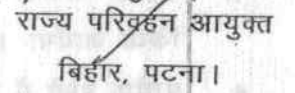 राज्य परिवहन आयुक्त
बिहार, पटना।